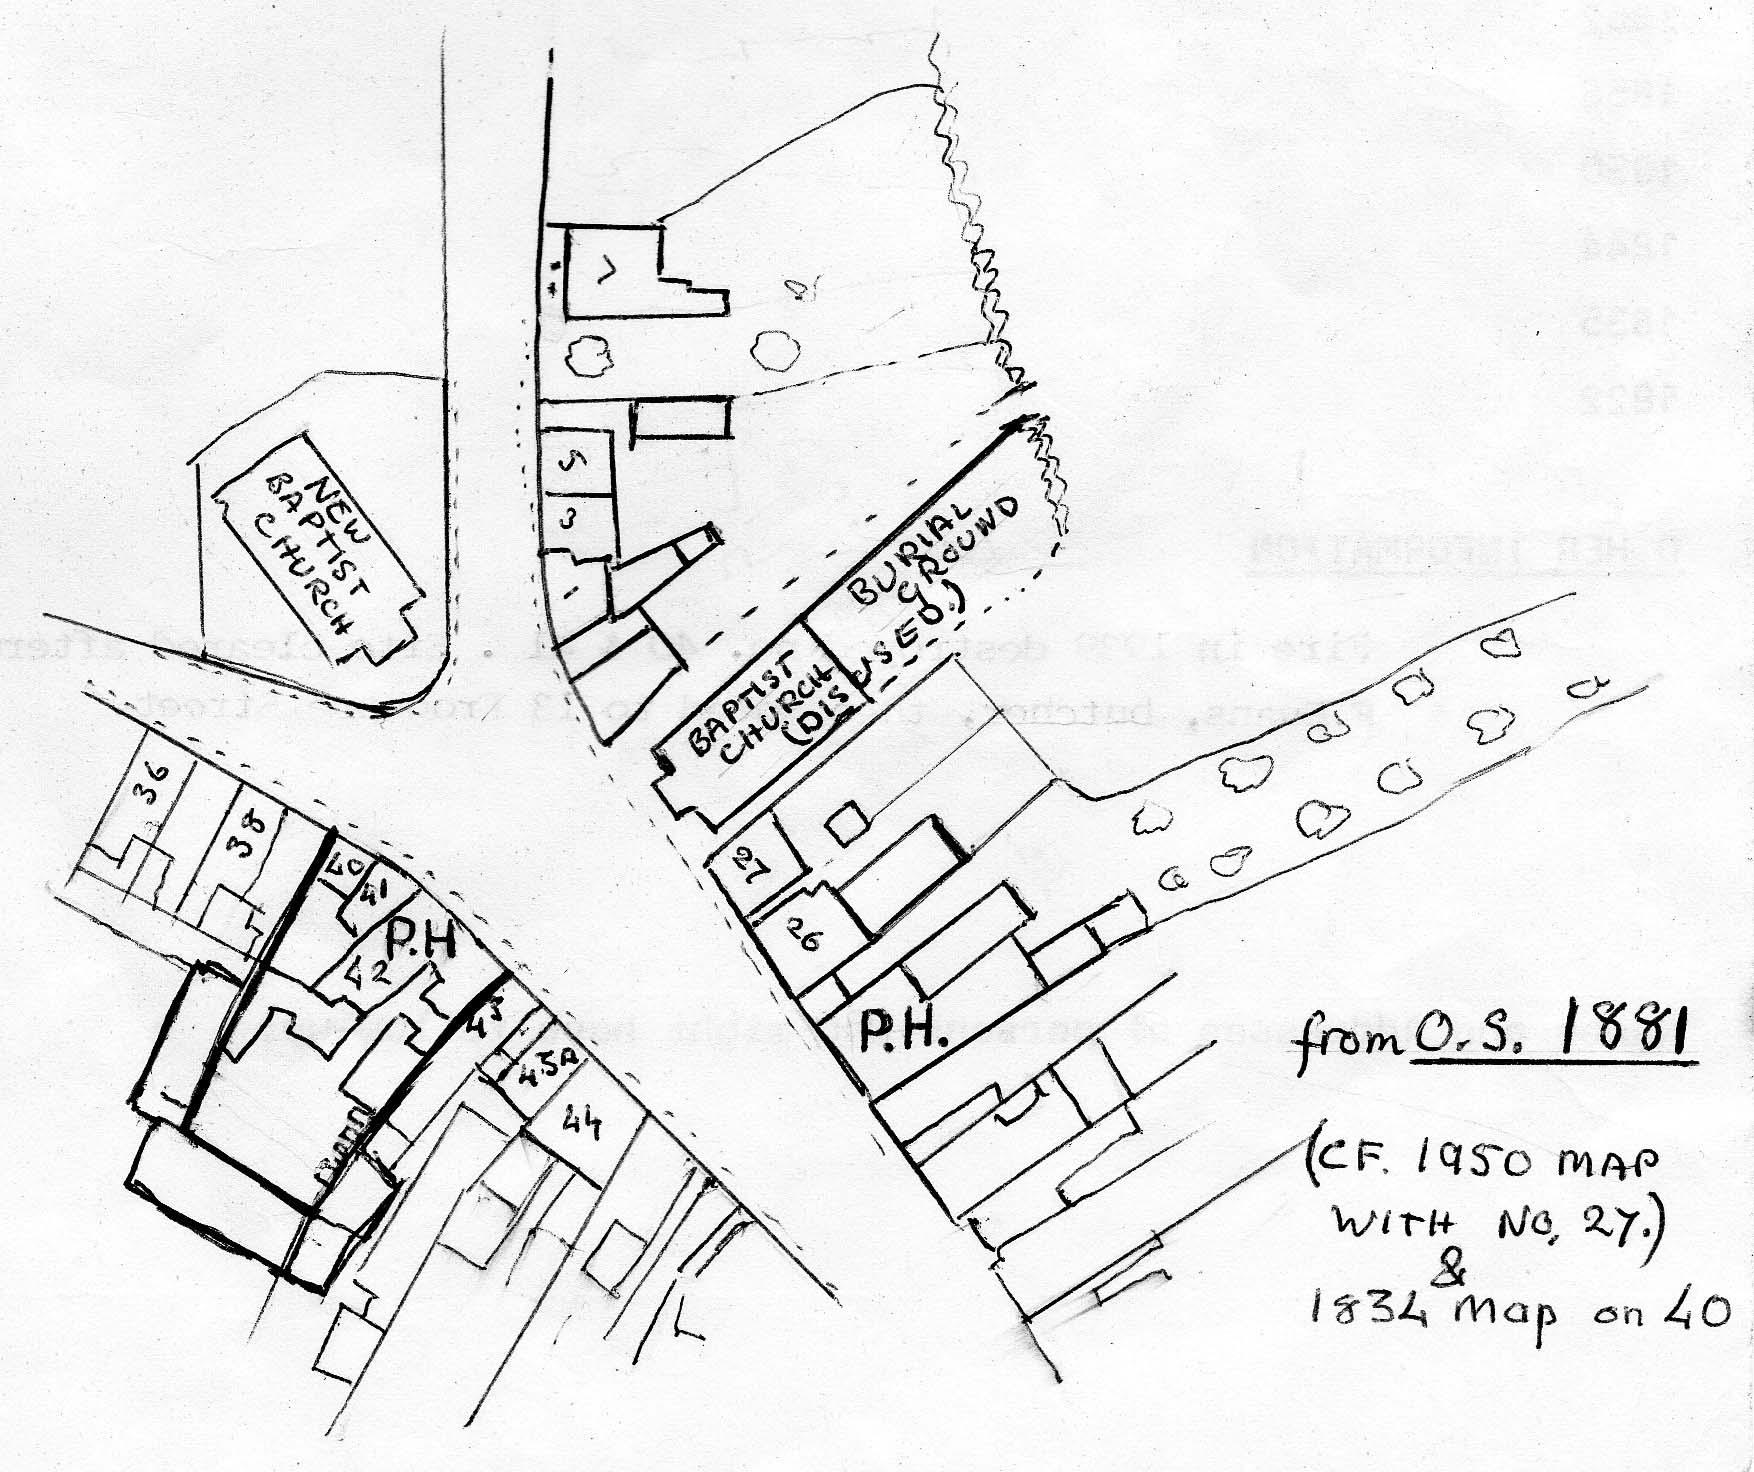 7
5
3
1
NEW
BAPTIST
CHURCH
BURIAL
GROUND
BAPTIST
CHURCH
(DISUSED.)
36
38
40
41
P.H
42
43
43A
44
27
26
P.H.
from O.S. 1881
(CF. 1950 MAP
WITH NO. 27.)
&
1834 Map on 40